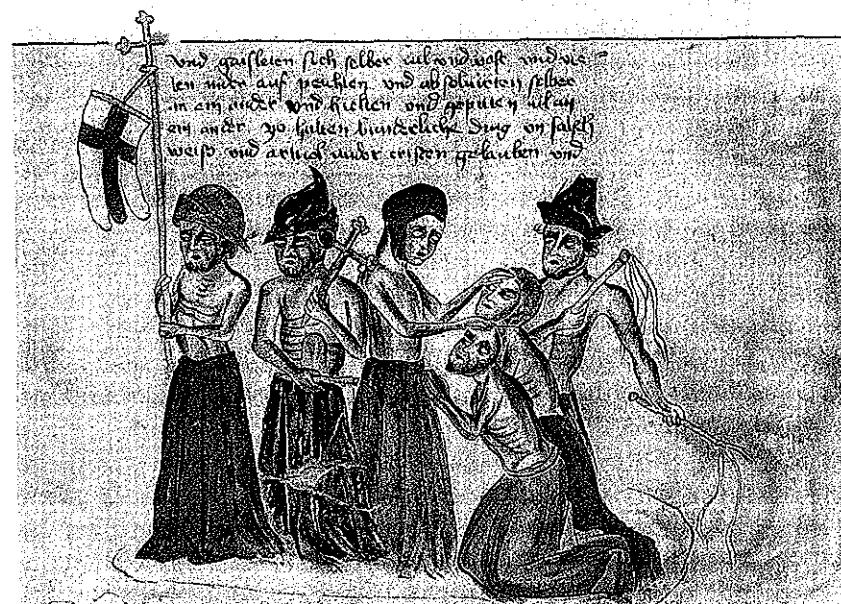 vnd gaisleten sich selber vil vnd vast vnd vie
len nider auf peuchlen vnd absoluieten selber
an ein ander vnd hielten vnd an
ein ander so hetten wunderliche ding vn falsch
weiss vnd artlich wider cristen gelauben vnd